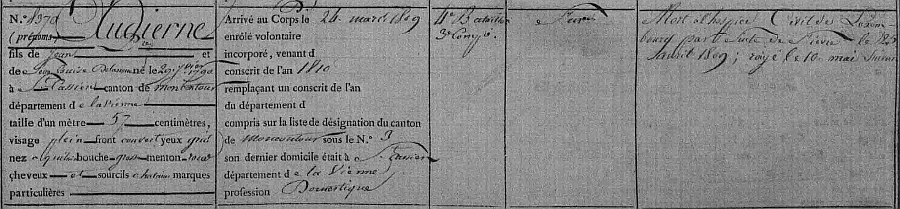 N.° 1370 Audierne
(prénoms)
fils de Jean et
de Louise né le 1790
à St Cassien canton de montcontour
département de la vienne
taille d'un mètre 57 centimètres,
visage plein front couvert yeux gris
nez aquilin bouche gros menton rond
cheveux et sourcils chatains marques
particulières
Arrivé au Corps le 24 mars 1809
enrôlé volontaire
incorporé, venant d
conscrit de l'an 1810
remplaçant un conscrit de l'an
du département d
compris sur la liste de désignation du canton
de Moncontour sous le N.° 3
son dernier domicile était à St Cassien
département de la Vienne
profession Domestique
4e Bataillon
3e Compie.
fievre
Mort a l'hospice Civil de
bourg par suite de fievre le 25
avril 1809; rayé le 10 mai Suivant